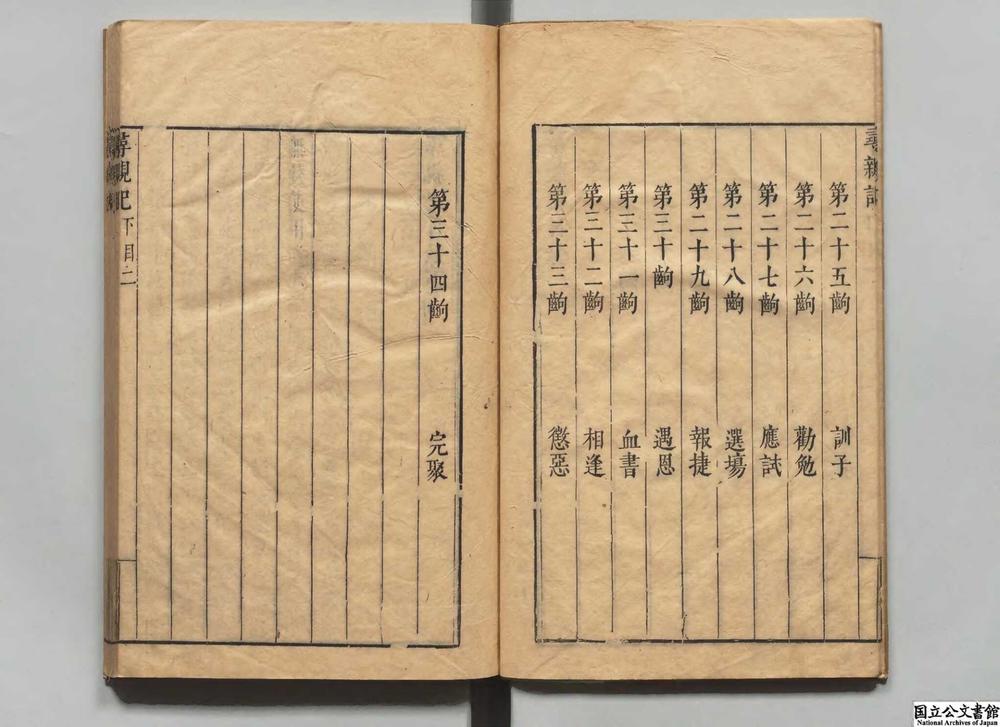 尋親記
第二十五齣 訓子
第二十六齣 勸勉
第二十七齣 應試
第二十八齣 選場
第二十九齣 報捷
第三十齣 遇恩
第三十一齣 血書
第三十二齣 相逢
第三十三齣 懲惡
第三十四齣 完聚
尋親記 下目二
国立公文書館
National Archives of Japan